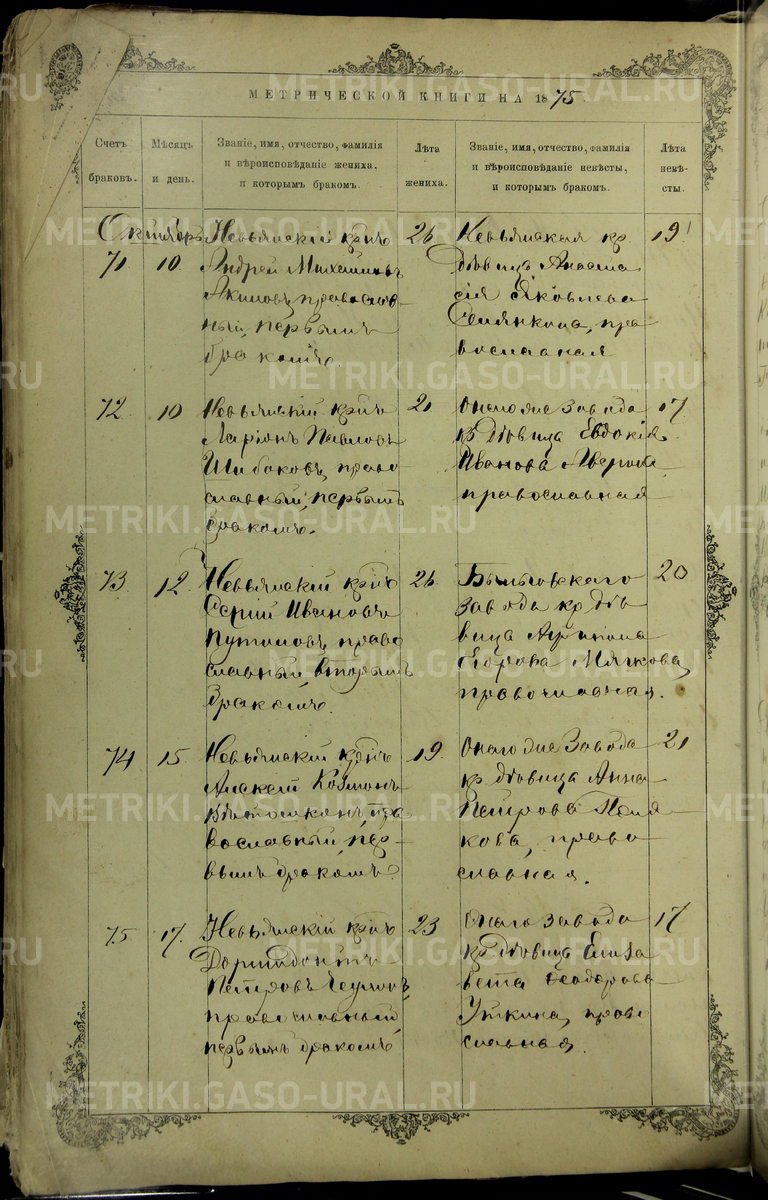 МЕТРИЧЕСКОЙ КНИГИ НА 1875.
Счетъ браковъ.
Мѣсяцъ и день.
Званіе, имя, отчество, фамилія
и вѣроисповѣданіе жениха,
и которымъ бракомъ.
Лѣта жениха.
Званіе, имя, отчество, фамилія
и вѣроисповѣданіе невѣсты,
и которымъ бракомъ.
Лѣта невѣсты.
Октябрь
71
10.
Невьянскій крнъ
Андрей
Акимовъ, православ
ный, первымъ
бракомъ.
26
Невьянская кр
дѣвица Анаста
сія Яковлева
пра
вославная
19
72.
10
Невьянскій крнъ
Ларіонъ Павловъ
право
славный, первымъ
бракомъ.
21
Онаго же завода
кр дѣвица Евдокія
Иванова
православная
17
73
12.
Невьянскій крнъ
Сергій Ивановъ
право
славный, вторымъ
бракомъ.
26.
завода кр дѣ
вица
Егорова Мягкова,
православная.
20
74
15.
Невьянскій крнъ
Алексій
пра
вославный, пер
вымъ бракомъ.
19.
Онаго же завода
кр дѣвица Анна
Петрова Поля
кова, право
славная.
21
75
17.
Невьянскій крнъ
Дормидонтъ
Петровъ
православный
первымъ бракомъ.
23
Онаго завода
кр дѣвица Елиза
вета Ѳеодорова
Уткина, право
славная.
17
METRIKI.GASO-URAL.RU